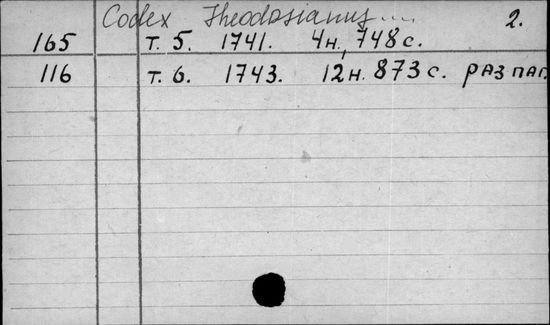 Codex Theodosianus.... 2.
165 т. 5. 1741. 4н, 748 с.
116 т. 6. 1743. 12н. 873 с. раз паг.